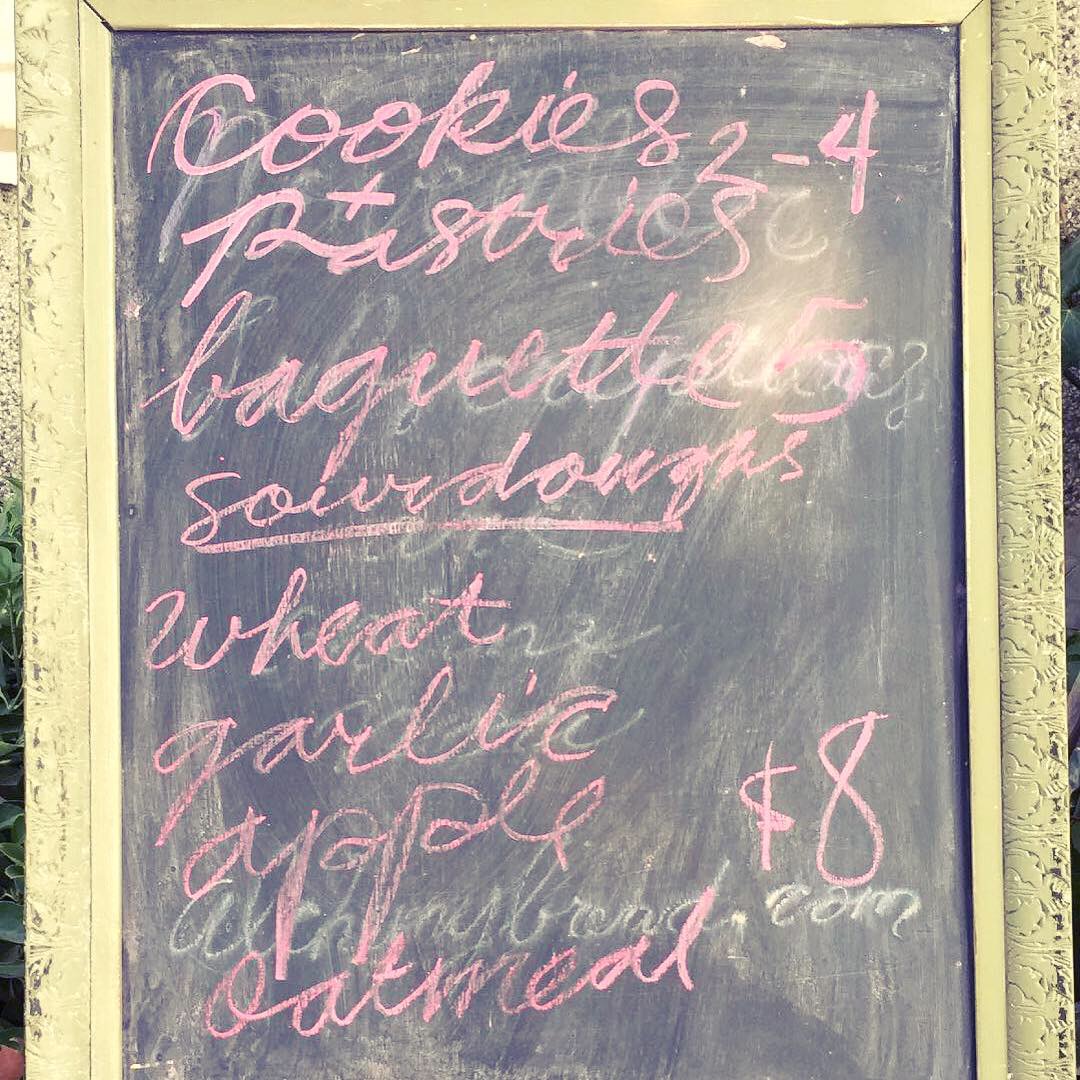 Cookies 2-4
+
Pastries
baguette 5
sourdoughs
wheat
garlic
apple $8
alchemybread.com
oatmeal